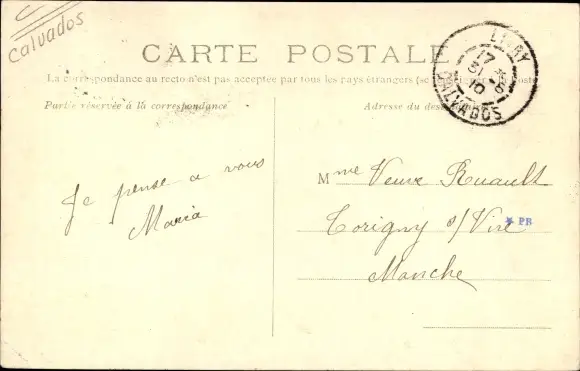 Calvados
CARTE POSTALE
La correspondance au recto n'est pas acceptée par tous les pays étrangers (se
Partie réservée à la correspondance
Adresse du
LIVRY
17
31
10
CALVADOS
Je pense a vous
Maria
Mme Veuve Ruault
Torigny s/Vire
PR
Manche